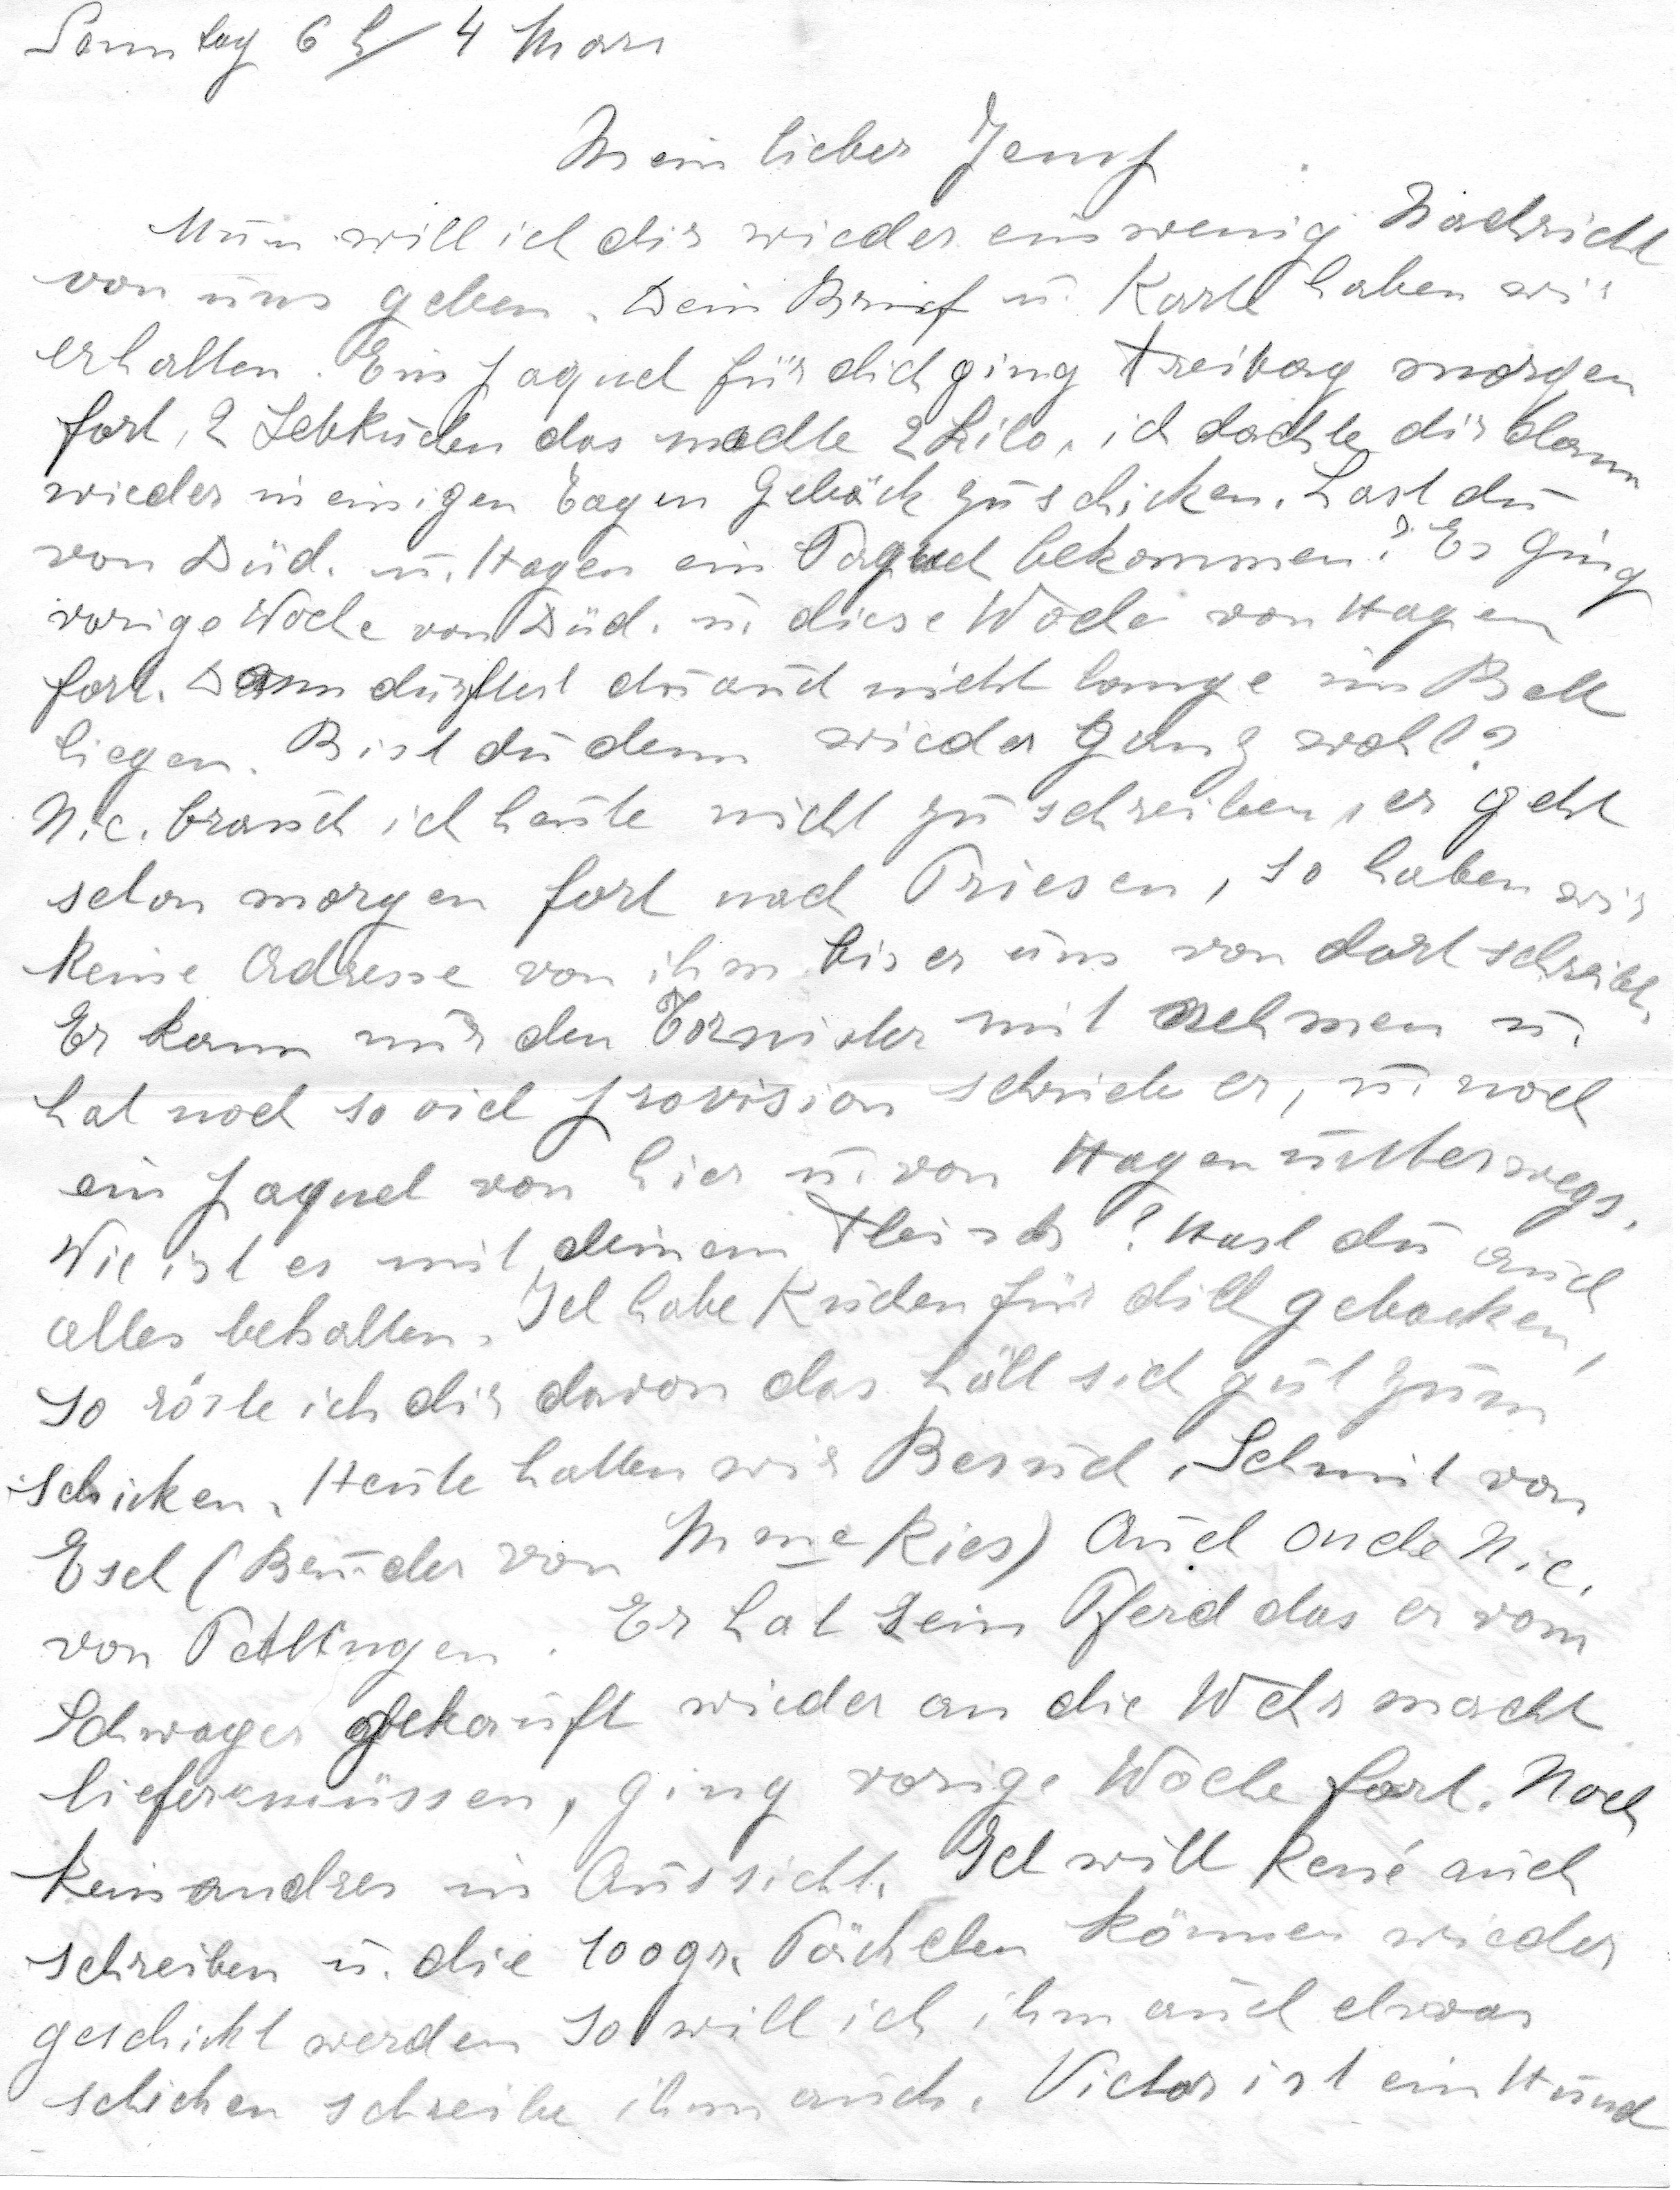 Sonntag 6 h/ 4 Mars
Mein lieber Jemp
Nun will ich dir wieder ein wenig Nachricht
von uns geben. Dein Brief u. Karte haben wir
erhalten. Ein paquet für dich ging Freitag morgen
fort, 2 Lebkuchen das machte 2 Kilo, ich dachte dir dann
wieder in einigen Tagen Gebäck zu schicken. Hast du
von Düd. u. Hagen ein Paquet bekommen? Es ging
vorige Woche von Düd. u. diese Woche von Hagen
fort. Dann durftest du auch nicht lange im Bett
liegen. Bist du denn wieder ganz wohl?
Nic. brauch ich heute nicht zu schreiben, er geht
schon morgen fort nach Priesen, so haben wir
keine Adresse von ihm bis er uns von dort schreibt.
Er kann nur den Tornister mit nehmen u.
hat noch so viel provision schrieb er, u. noch
ein paquet von hier u. von Hagen unterwegs.
Wie ist es mit deinem Fleisch? Hast du auch
alles behalten. Ich habe Kuchen für dich gebacken,
so röste ich dir davon das hält sich gut zum
schicken. Heute hatten wir Besuch, Schmit von
Esch (Bruder von Mme Ries) Auch Oncle Nic.
von Petingen. Er hat sein Pferd das er vom
Schwager gekauft wieder an die Wehrmacht
liefern müssen, ging vorige Woche fort. Noch
kein andres in Aussicht. Ich will René auch
schreiben u. die 100gr. Päckchen können wieder
geschickt werden so will ich ihm auch etwas
schicken schreibe ihm auch. Victor ist ein Hund